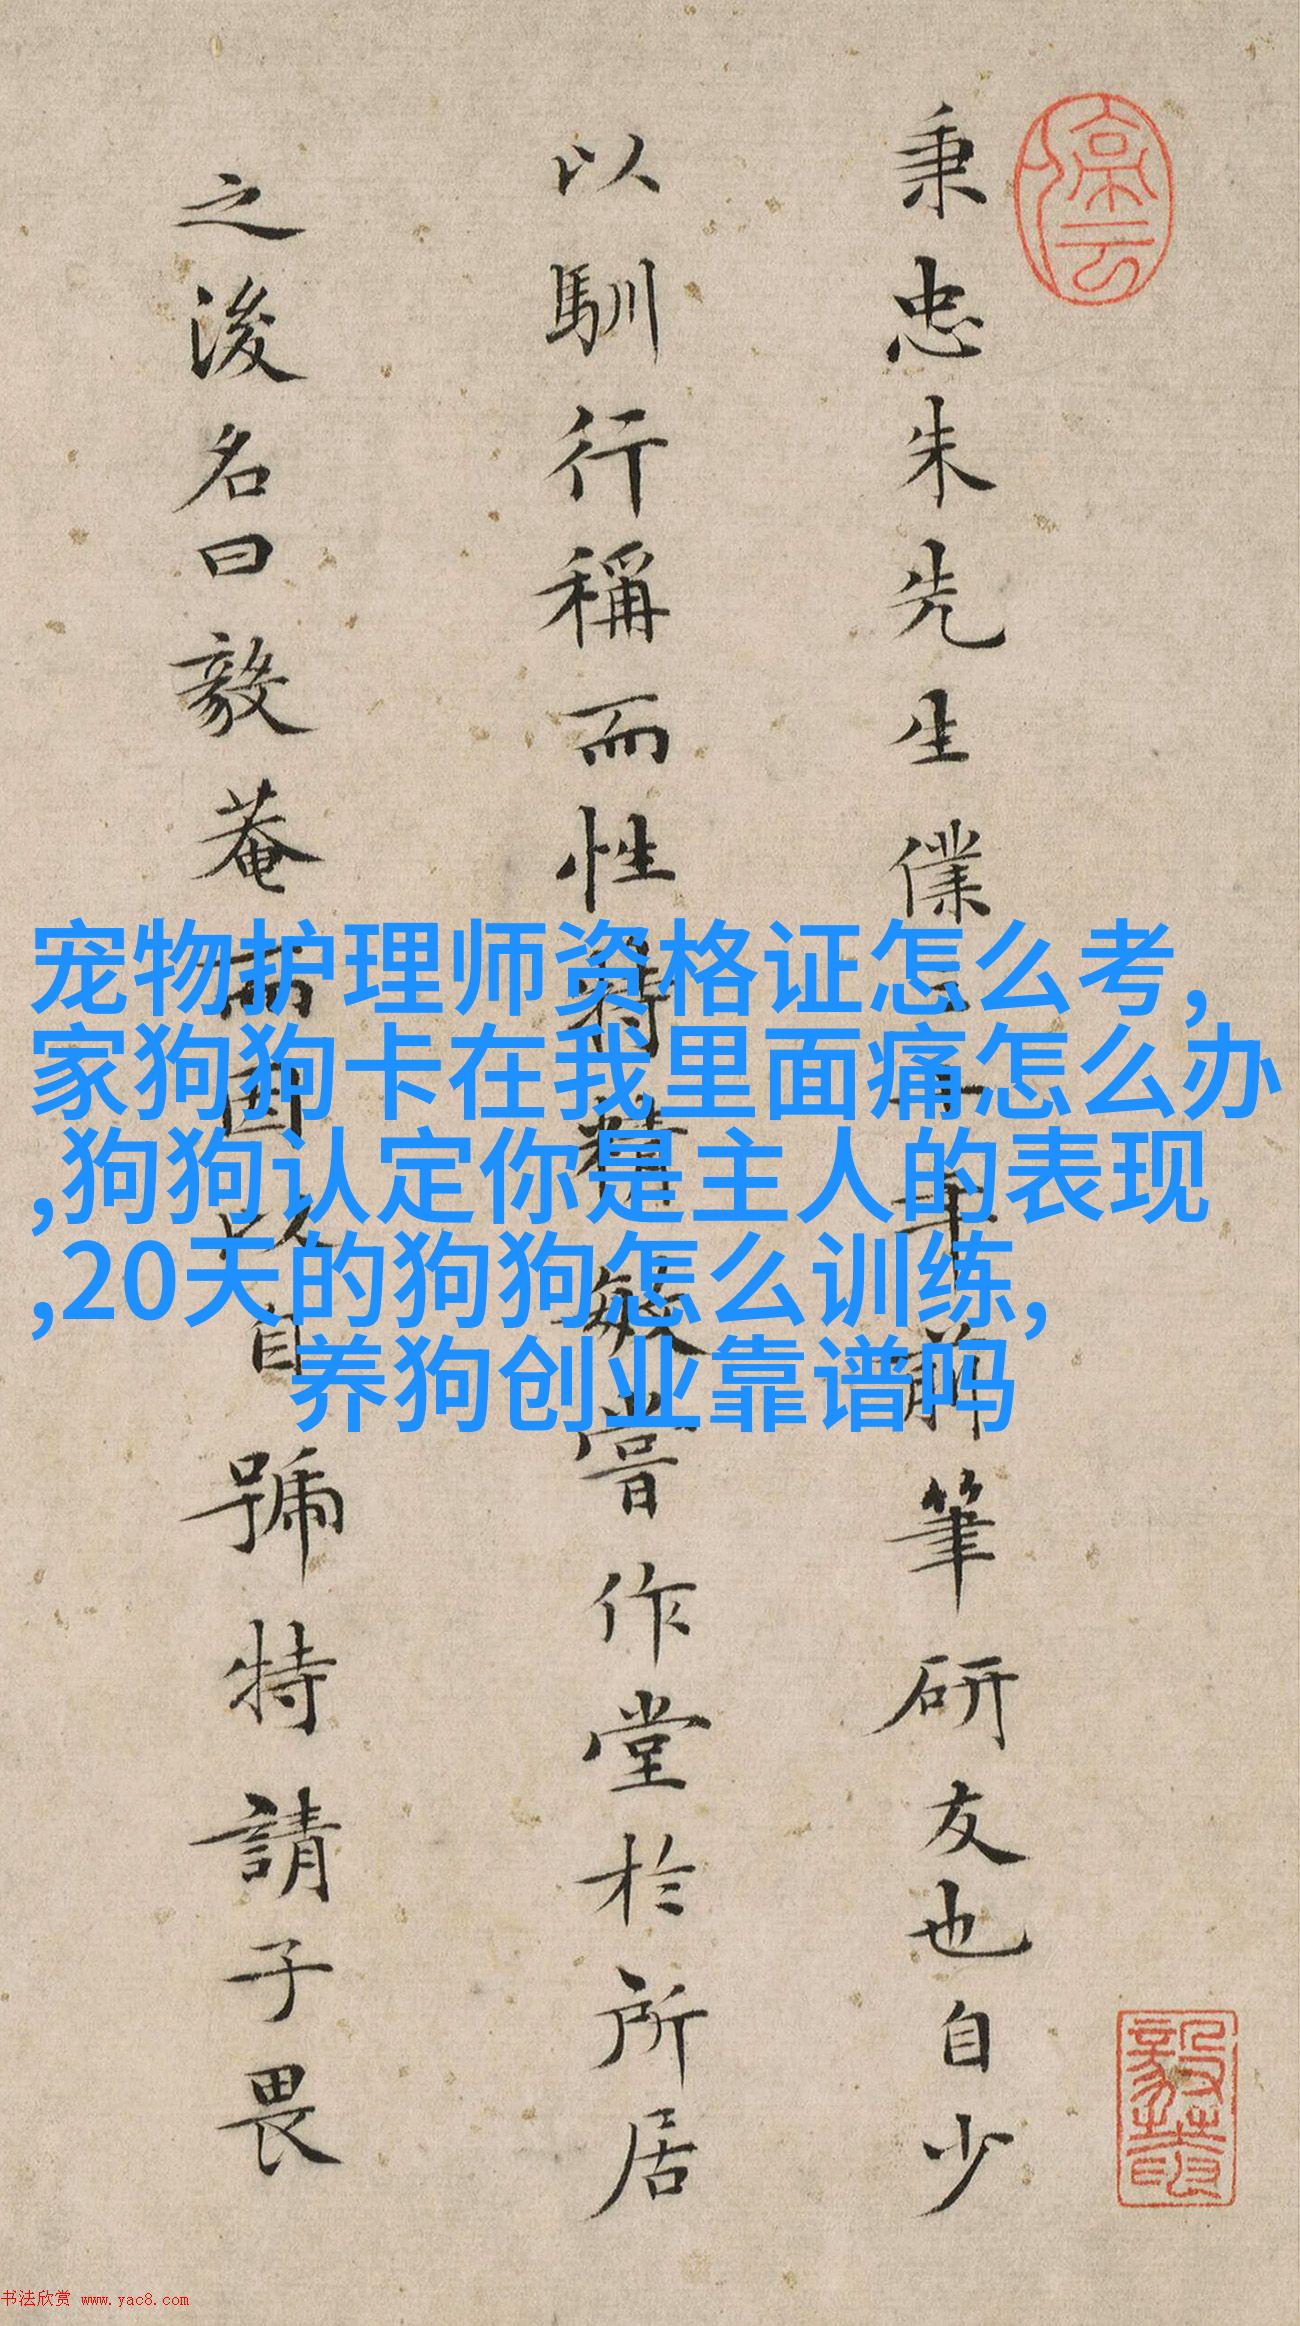 秉忠朱先生僕三十年前筆研友也自少
以馴行稱而性特精敏嘗作堂於所居
之後名曰毅菴而因以自號特請子畏
宠物护理师资格证怎么考,
家狗狗卡在我里面痛怎么办
,狗狗认定你是主人的表现
,20天的狗狗怎么训练,
养狗创业靠谱吗
书法欣赏 www.yac8.com